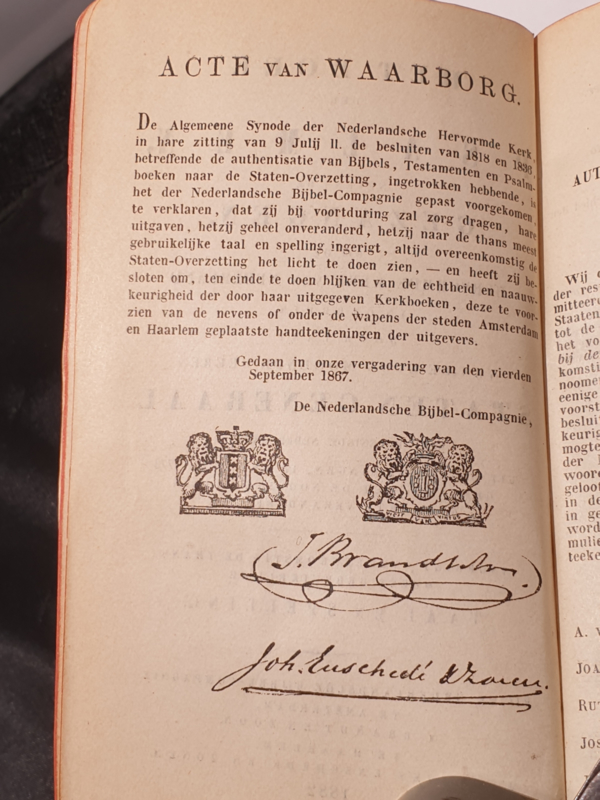 ACTE VAN WAARBORG.
De Algemeene Synode der Nederlandsche Hervormde Kerk,
in hare zitting van 9 Julij ll. de besluiten van 1818 en
betreffende de authentisatie van Bijbels, Testamenten en Psalm-
boeken naar de Staten-Overzetting, ingetrokken hebbende, is
het der Nederlandsche Bijbel-Compagnie gepast voorgekomen,
te verklaren, dat zij bij voortduring zal zorg dragen, hare
uitgaven, hetzij geheel onveranderd, hetzij naar de thans meest
gebruikelijke taal en spelling ingerigt, altijd overeenkomstig de
Staten-Overzetting het licht te doen zien, — en heeft zij be-
sloten om, ten einde te doen blijken van de echtheid en naauw-
keurigheid der door haar uitgegeven Kerkboeken, deze te voor-
zien van de nevens of onder de wapens der steden Amsterdam
en Haarlem geplaatste handteekeningen der uitgevers.
Gedaan in onze vergadering van den vierden
September 1867.
De Nederlandsche Bijbel-Compagnie,
J. Brandt &
Joh. Enschedé & Zonen.
AUT
Wij
der res
mitteer
Staaten
tot de
het vo
bij de
komsti
noomen
eenige
voorst
besluit
keurig
mogte
der
woord
geloof
in de
in ge
word
mulie
teeke
A. V
JOA
RUT
JOS